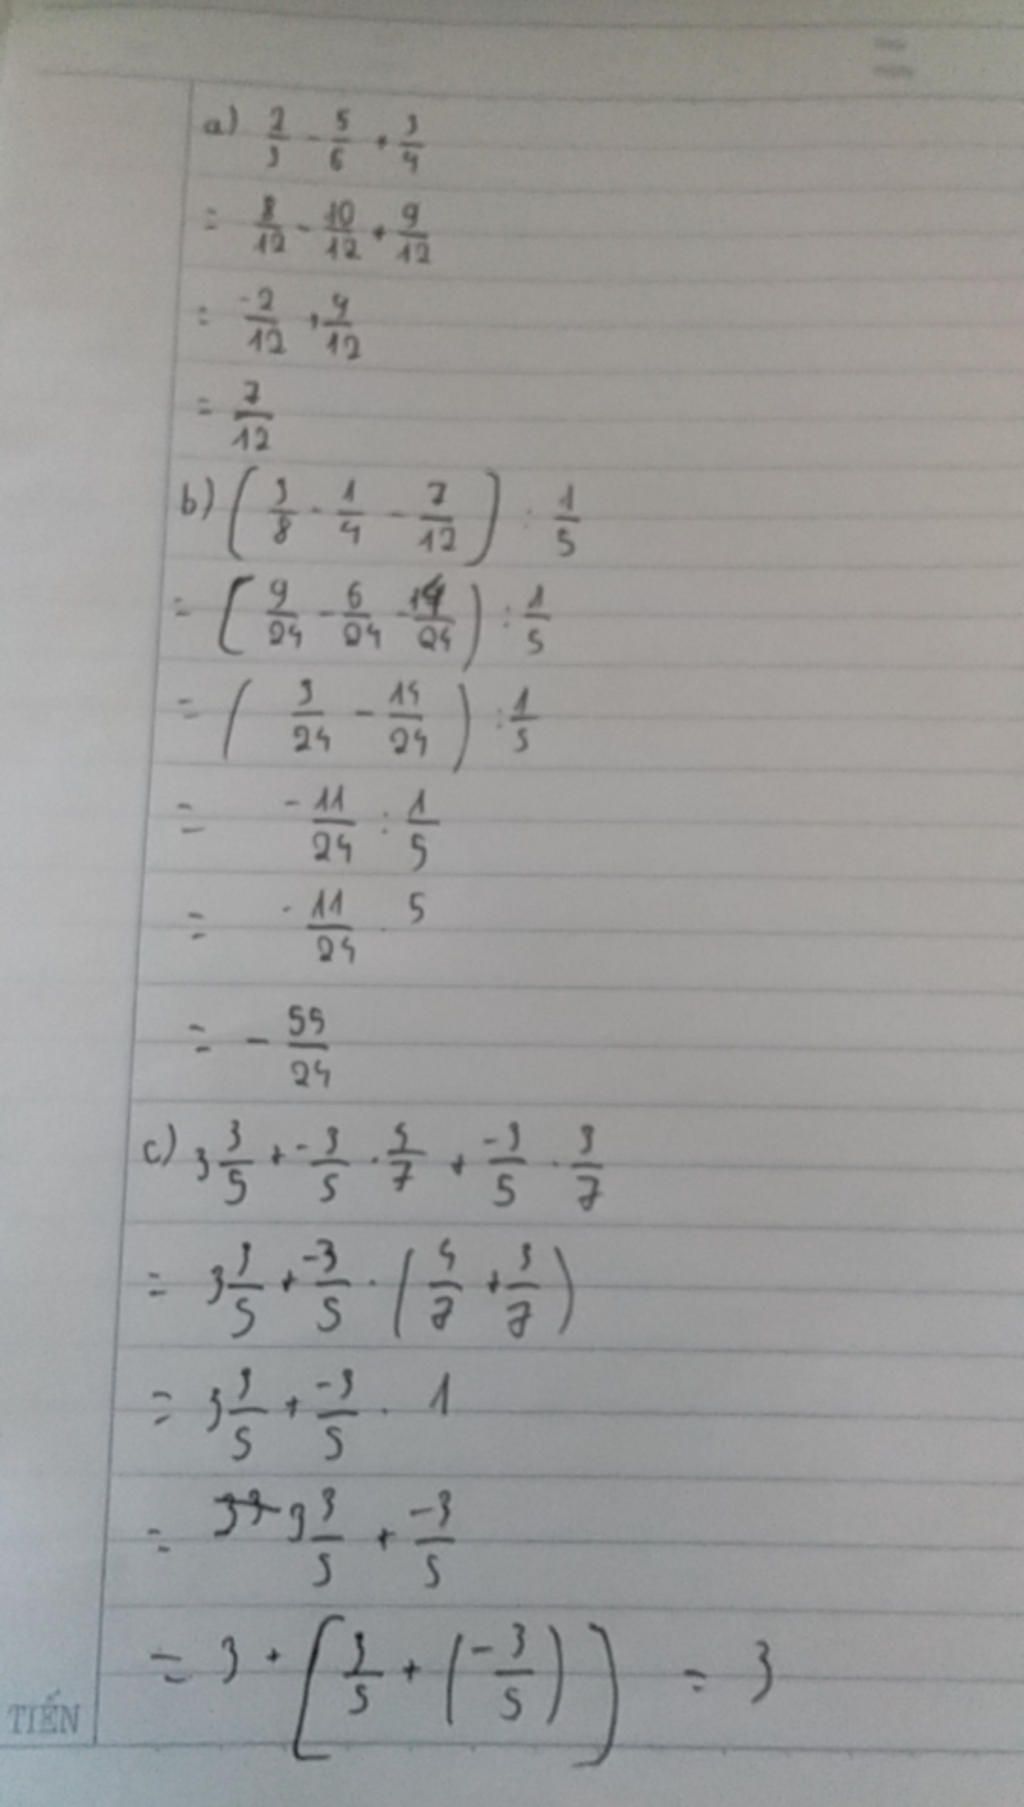 a) 2/3 - 5/6 + 3/4
= 8/12 - 10/12 + 9/12
= -2/12 + 9/12
= 7/12
b) (3/8 - 1/4 - 7/12) : 1/5
= (9/24 - 6/24 - 14/24) : 1/5
= (3/24 - 14/24) : 1/5
= -11/24 : 1/5
= -11/24 . 5
= - 55/24
c) 3 3/5 + -3/5 . 4/7 + -3/5 . 3/7
= 3 3/5 + -3/5 . (4/7 + 3/7)
= 3 3/5 + -3/5 . 1
= 3 3/5 + -3/5
= 3 + [3/5 + (-3/5)] = 3
TIẾN